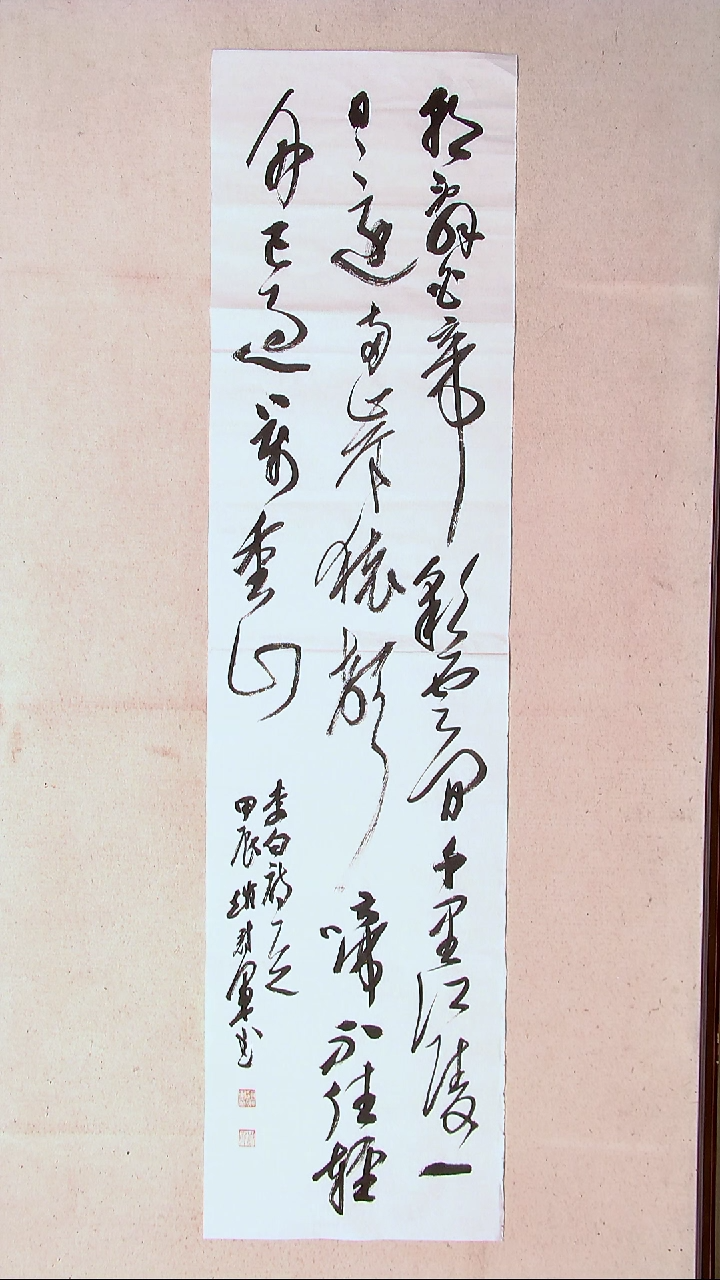 朝辭白帝彩雲間千里江陵一
日還兩岸猿聲啼不住輕
舟已過萬重山
李白詩一首
甲辰趙軍書